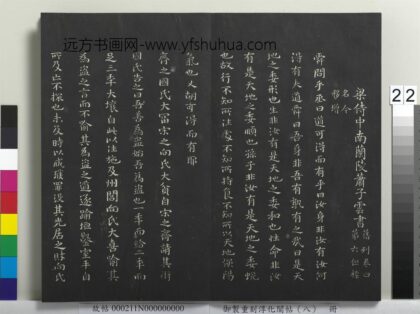 远方书画网-www.yfshuhua.com
梁侍中南蘭陵蕭子雲書
舜問乎丞曰道可得而有乎曰汝身非汝有汝何
得有夫道舜曰吾身非吾有孰有之哉曰是天
地之委形也生非汝有是天地之委和也性命非汝
有是天地之委順也孫子非汝有是天地之委蛻
也故行不知所往處不知所持食不知所以天地強陽
氣也又胡可得而有耶
齊之國氏大富宋之向氏大貧自宋之齊請其術
國氏告之曰吾善為盜始吾為盜也一年而給二年而
足三年大壤自此以往施及州閭向氏大喜喻其
為盜之言而不喻其為盜之道遂踰垣鑿室手目
所及亡不探也未及時以贓獲罪沒其先居之財向氏
22
故帖 000211N000000000
御製重刻淳化閣帖（八） 冊